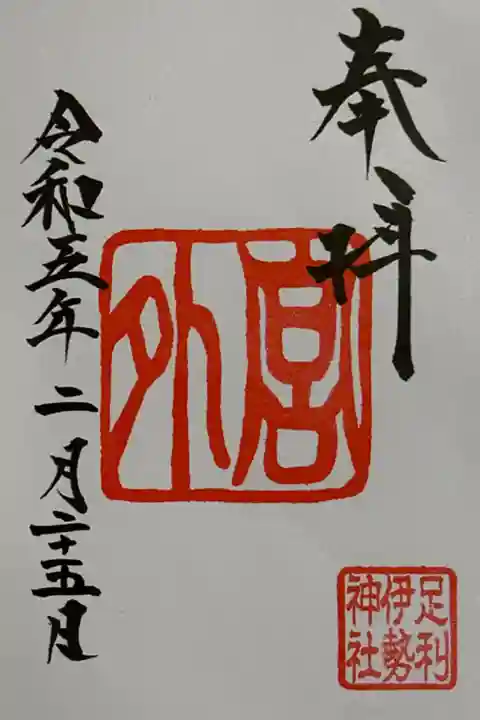 奉拝
外宮
令和五年二月二十五日
足利
伊勢
神社